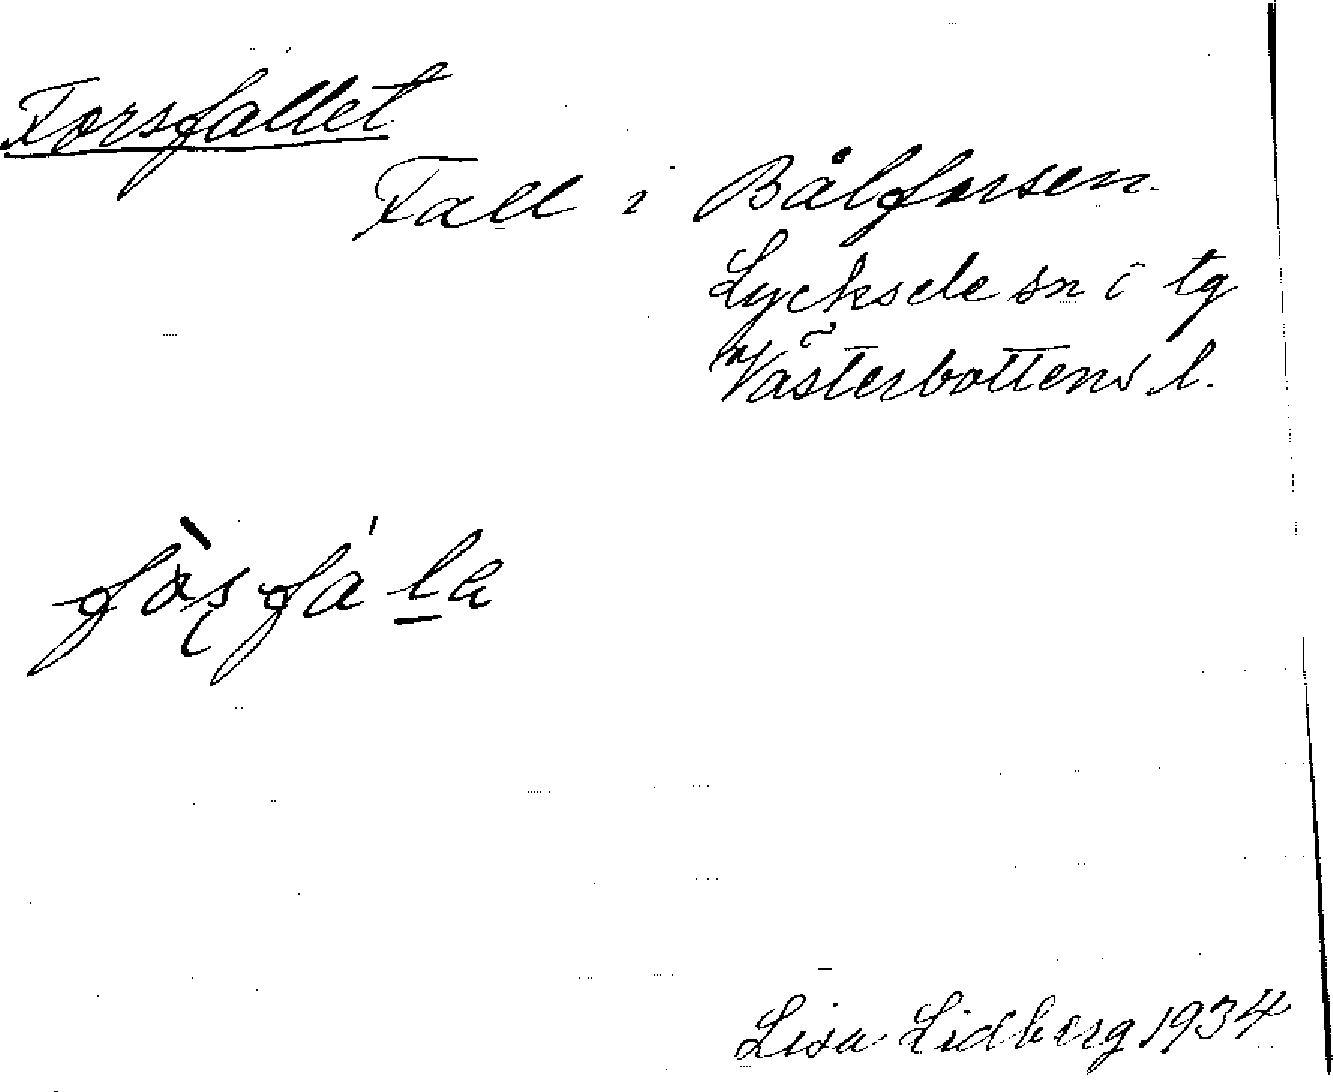 Forsfallet
Fall i Bålforsen
Lycksele sn i tg
Västerbottens l.
fàs̨fá l̲a
Lisa Lidberg 1934